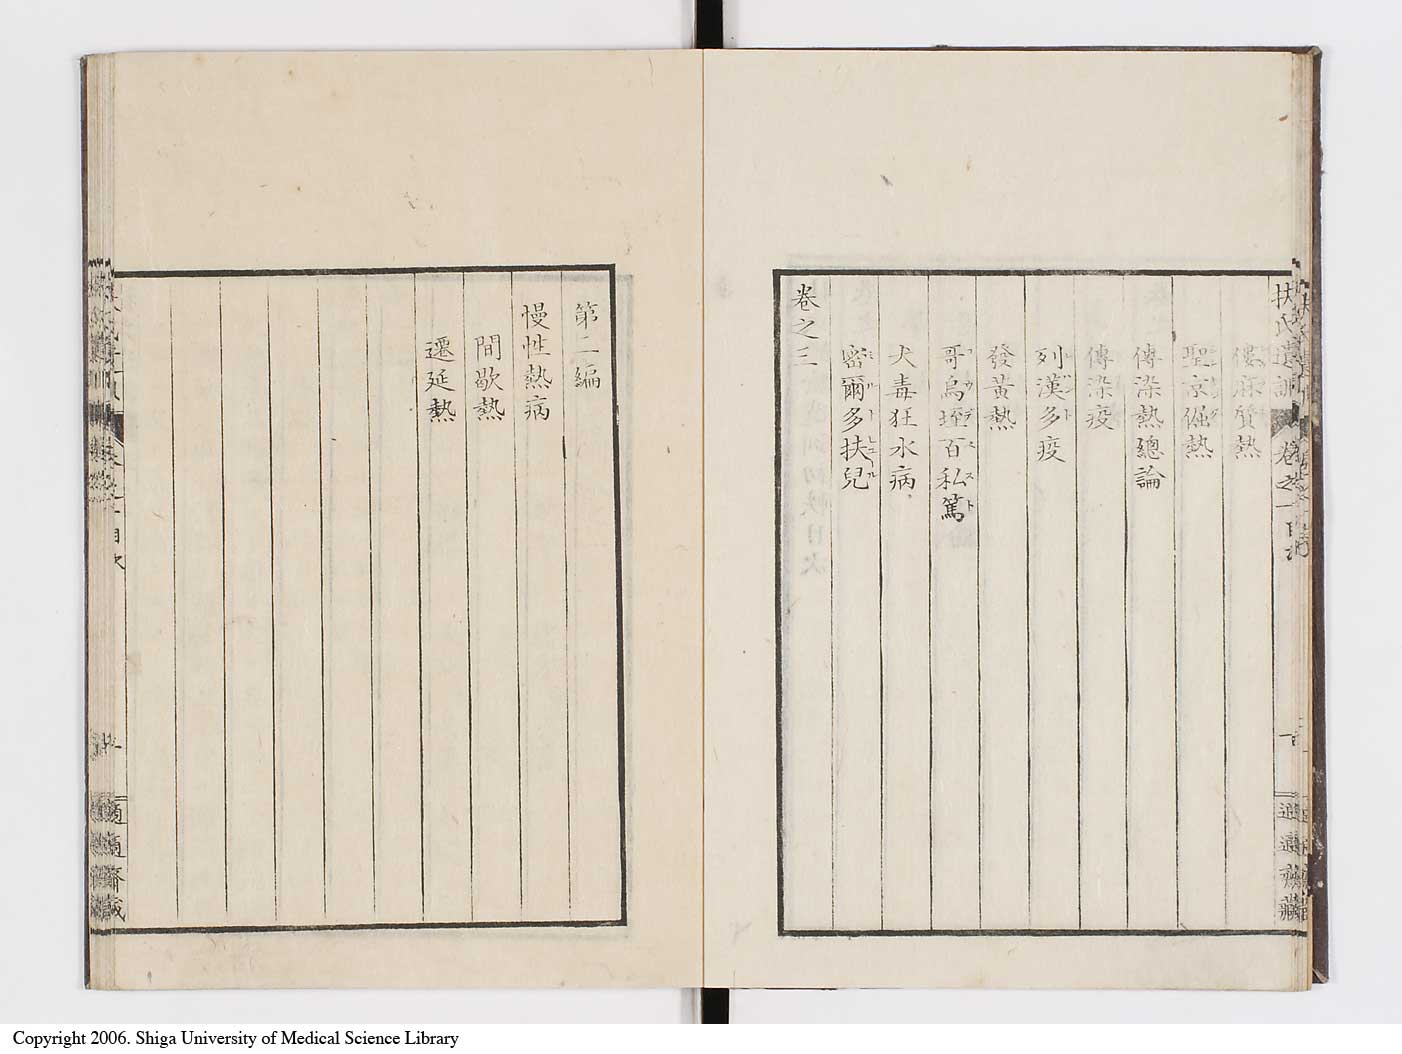 扶氏遺訓 卷之一目次
僂麻質熱
聖京倔熱
傳染熱總論
傳染疫
列漢多疫
發黃熱
哥烏垤百私篤
犬毒狂水病
密爾多扶兒
卷之三
第二編
慢性熱病
間歇熱
遷延熱
適適齋藏
Copyright 2006. Shiga University of Medical Science Library